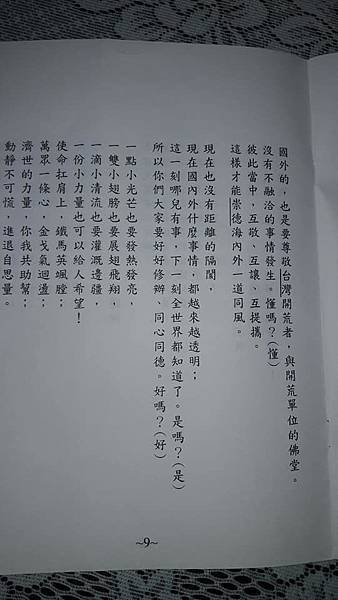 國外的，也是要尊敬台灣開荒者，與開荒單位的佛堂。
沒有不融洽的事情發生。懂嗎？(懂)
彼此當中，互敬、互讓、互提攜。
這樣才能崇德海內外一道同風。
現在也沒有距離的隔閡，
現在國內外什麼事情，都越來越透明；
這一刻哪兒有事，下一刻全世界都知道了。是嗎？(是)
所以你們大家要好好修辦、同心同德。好嗎？(好)
一點小光芒也要發熱發亮，
一雙小翅膀也要展翅飛翔，
一滴小清流也要灌溉邊疆，
一份小力量也可以給人希望！
使命扛肩上，鐵馬英颯膛；
萬眾一條心，金戈氣迴盪；
濟世的力量，你我共助幫；
動靜不可慌，進退自思量。
~9~